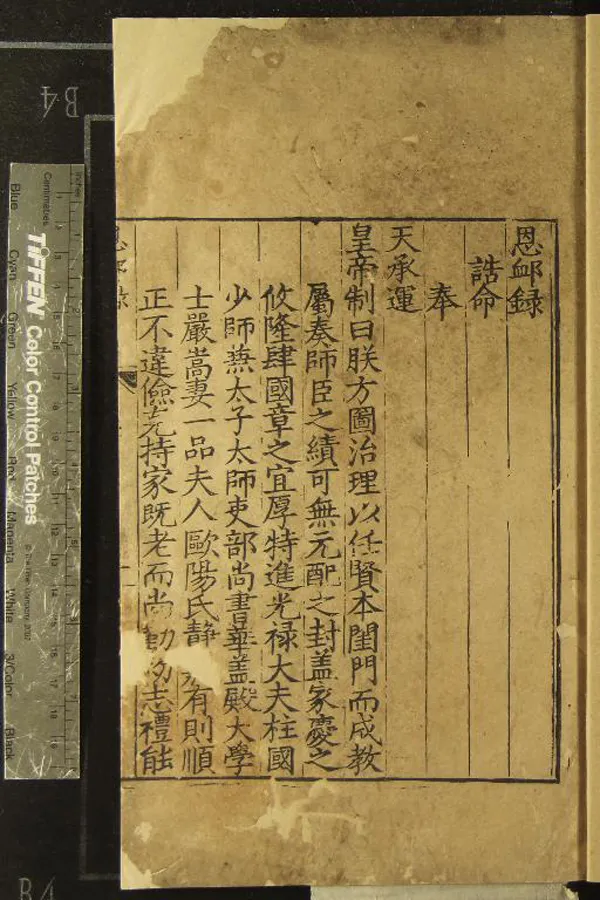 恩卹録
誥命
奉
天承運
皇帝制曰朕方圖治理以任賢本閨門而成教
屬奏師臣之績可無元配之封盖家慶之
攸隆肆國章之宜厚特進光禄大夫柱國
少師蕪太子太師吏部尚書華盖殿大學
士嚴嵩妻一品夫人歐陽氏靜 有則順
正不違儉 持家既老而尚勤 志禮能
録
B4
inches
Centimetres
TIFFEN Color Control Patches
Blue
Cyan
Green
Yellow
Red
Magenta
White
3/Color
Black
B4